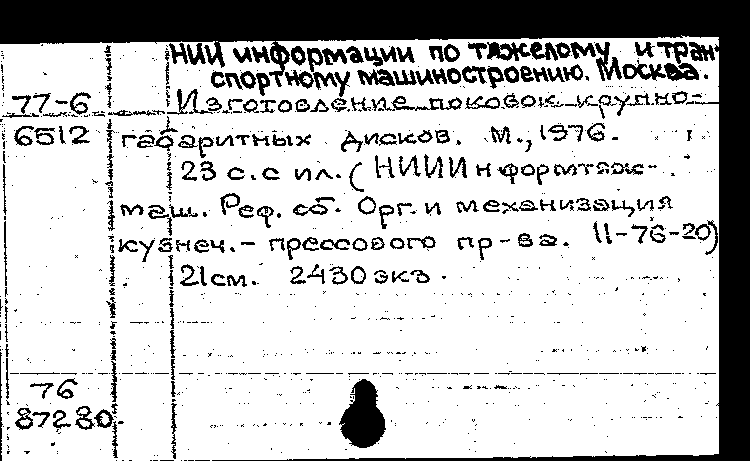 НИИ информации по тяжелому и тран-
спортному машиностроению. Москва.
77-6 Изготовление поковок крупно-
6512 габаритных дисков. М., 1976.
23 с. с ил. (НИИИнформтяж-
маш. Реф. сб. Орг. и механизация
кузнеч.- прессового пр-ва. 11-76-20)
21см. 2430 экз.
76
87280.